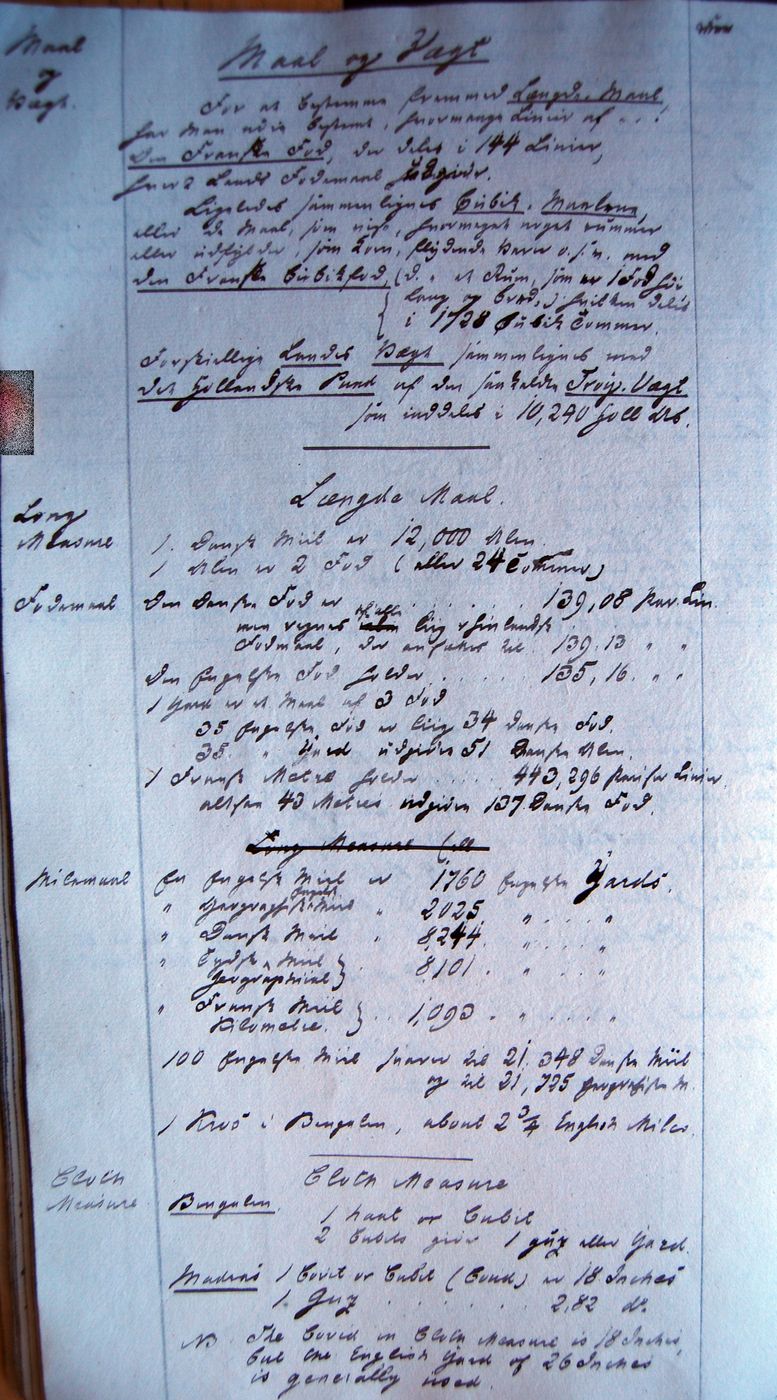 Maal
og
Vægt.
Maal og Vægt
For at bestemme fremmed Længde-Maal,
har man nöie bestemt, hvormange Linier af
Den Franske Fod, der deles i 144 Linier,
hvert Lands Fodemaal udgiör.
Ligeledes sammenlignes Cubik-Maalene,
eller de Maal, som vise, hvormeget noget rummer
eller udfylder, som Korn, flydende Varer o.s.v. med
den Franske Cubikfod, (d. e. et Rum, som er 1 Fod
lang og bred,) hvilken deles
i 1728 Cubik Tommer.
Forskiellige Landes Vægt sammenlignes med
det hollandske Pund af den saakaldte Troy-Vægt
som inddeles i 10,240 holl Als.
Længde Maal.
Long
Measure
1. Dansk Miil er 12,000 Alen.
1 Alen er 2 Fod (eller 24 Tommer)
Fodemaal
Den Danske Fod er 139,08 Par. Lin.
men regnes lig rhinlandsk
Fodmaal, der ansættes til 139.13 " "
Den Engelske Fod holder 135,16. " "
1 Yard er et Maal af 3 Fod
35 Engelske Fod er liig 34 Danske Fod.
35. " Yard udgiör 51 Danske Alen.
1 Fransk Metre holder 443,296 Pariser Linier.
altsaa 43 Metres udgiöre 137 Danske Fod.
Long Measure
Milemaal
En Engelsk Miil er 1760 Engelske Yards.
" Geografisk Miil " 2025. " "
" Dansk Miil " 8,244. " "
" Tydsk Miil
Geographical } 8101. " "
" Fransk Miil
Kilometre. } 1,093 " "
100 Engelske Miil svarer til 21,348 Danske Miil
og til 21,725 geografiske M.
1 Kros i Bengalen, about 2 3/4 English Miles.
Cloth
Measure
Cloth Measure
Bengalen
1 haat or Cubit
2 Cubits giör 1 guz eller Yard.
Madras 1 Covit or Cubit (Covid) er 18 Inches
1. Guz 2,82 do
NB The Covid in Cloth Measure is 18 Inches,
but the English Yard of 26 Inches
is generally used.